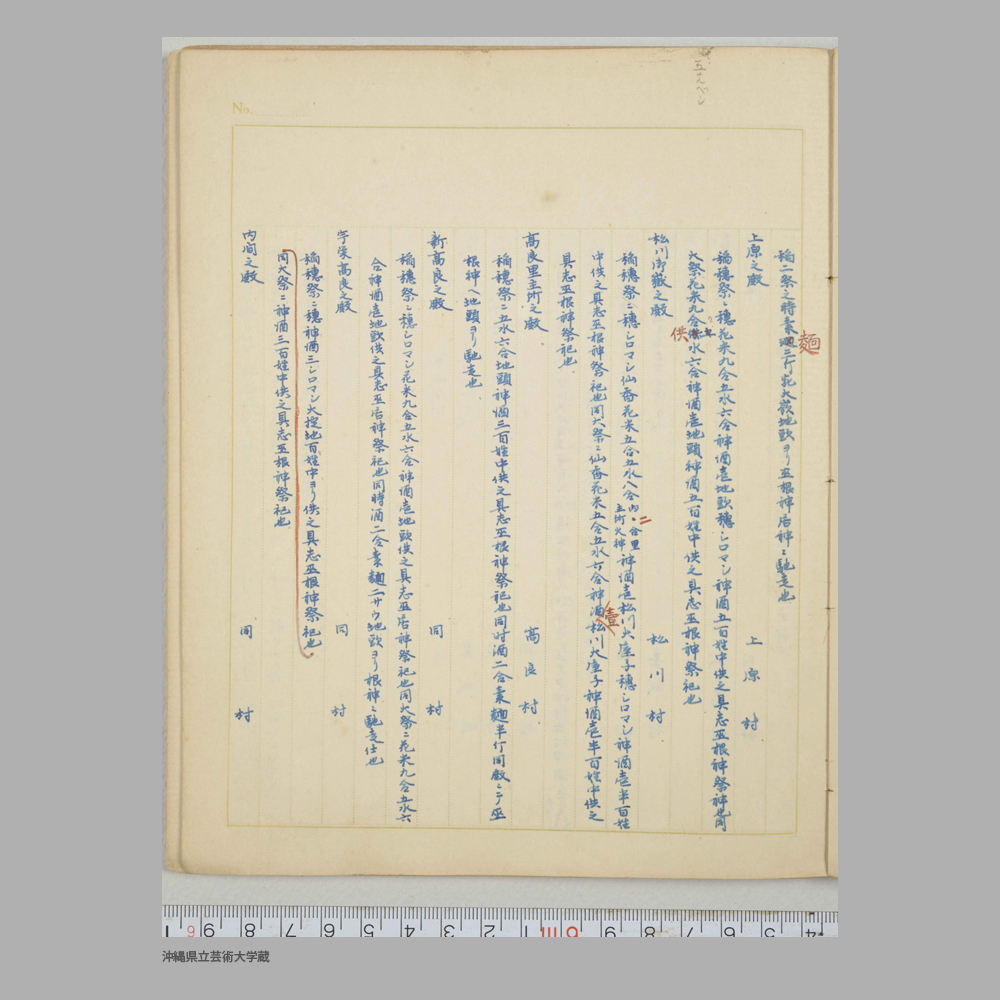 稲二祭之時素麺二斤乳大嶽地頭ヨリ巫根神居神ニ馳走也
麺
上原之殿 上原村
稲穂祭ニ穂花米九合五水六合神酒壱地頭穂シロマシ神酒五百姓中供之具志巫根神祭神也同
大祭花米九合五水六合神酒壱地頭神酒五百姓中供之具志巫根神祭祀也
供
松川御嶽之殿 松川村
稲穂祭ニ穂シロマシ仙香花米五合五水八合内二合里主所火神神酒壱松川大屋子穂シロマシ神酒壱半百姓
中供之具志巫根神祭祀也同大祭ニ仙香花米五合五水六合神酒壱松川大屋子神酒壱半百姓中供之
壹
具志巫根神祭祀也
高良里主所之殿 高良村
稲穂祭ニ五水六合地頭神酒三百姓中供之具志巫根神祭祀也同時酒二合素麺半斤同殿ニテ巫
根神ヘ地頭ヨリ馳走也
新高良之殿 同村
稲穂祭ニ穂シロマシ花米九合五水六合神酒壱地頭供之具志巫居神祭祀也同大祭ニ花米九合五水六
合神酒壱地頭供之具志巫居神祭祀也同時酒二合素麺二サウ地頭ヨリ根神ニ馳走仕也
宇栄高良之殿 同村
稲穂祭ニ穂神酒三シロマシ大掟地百姓中ヨリ供之具志巫根神祭祀也
同大祭ニ神酒三百姓中供之具志巫根神祭祀也
内間之殿 同村
No.
沖縄県立芸術大学蔵